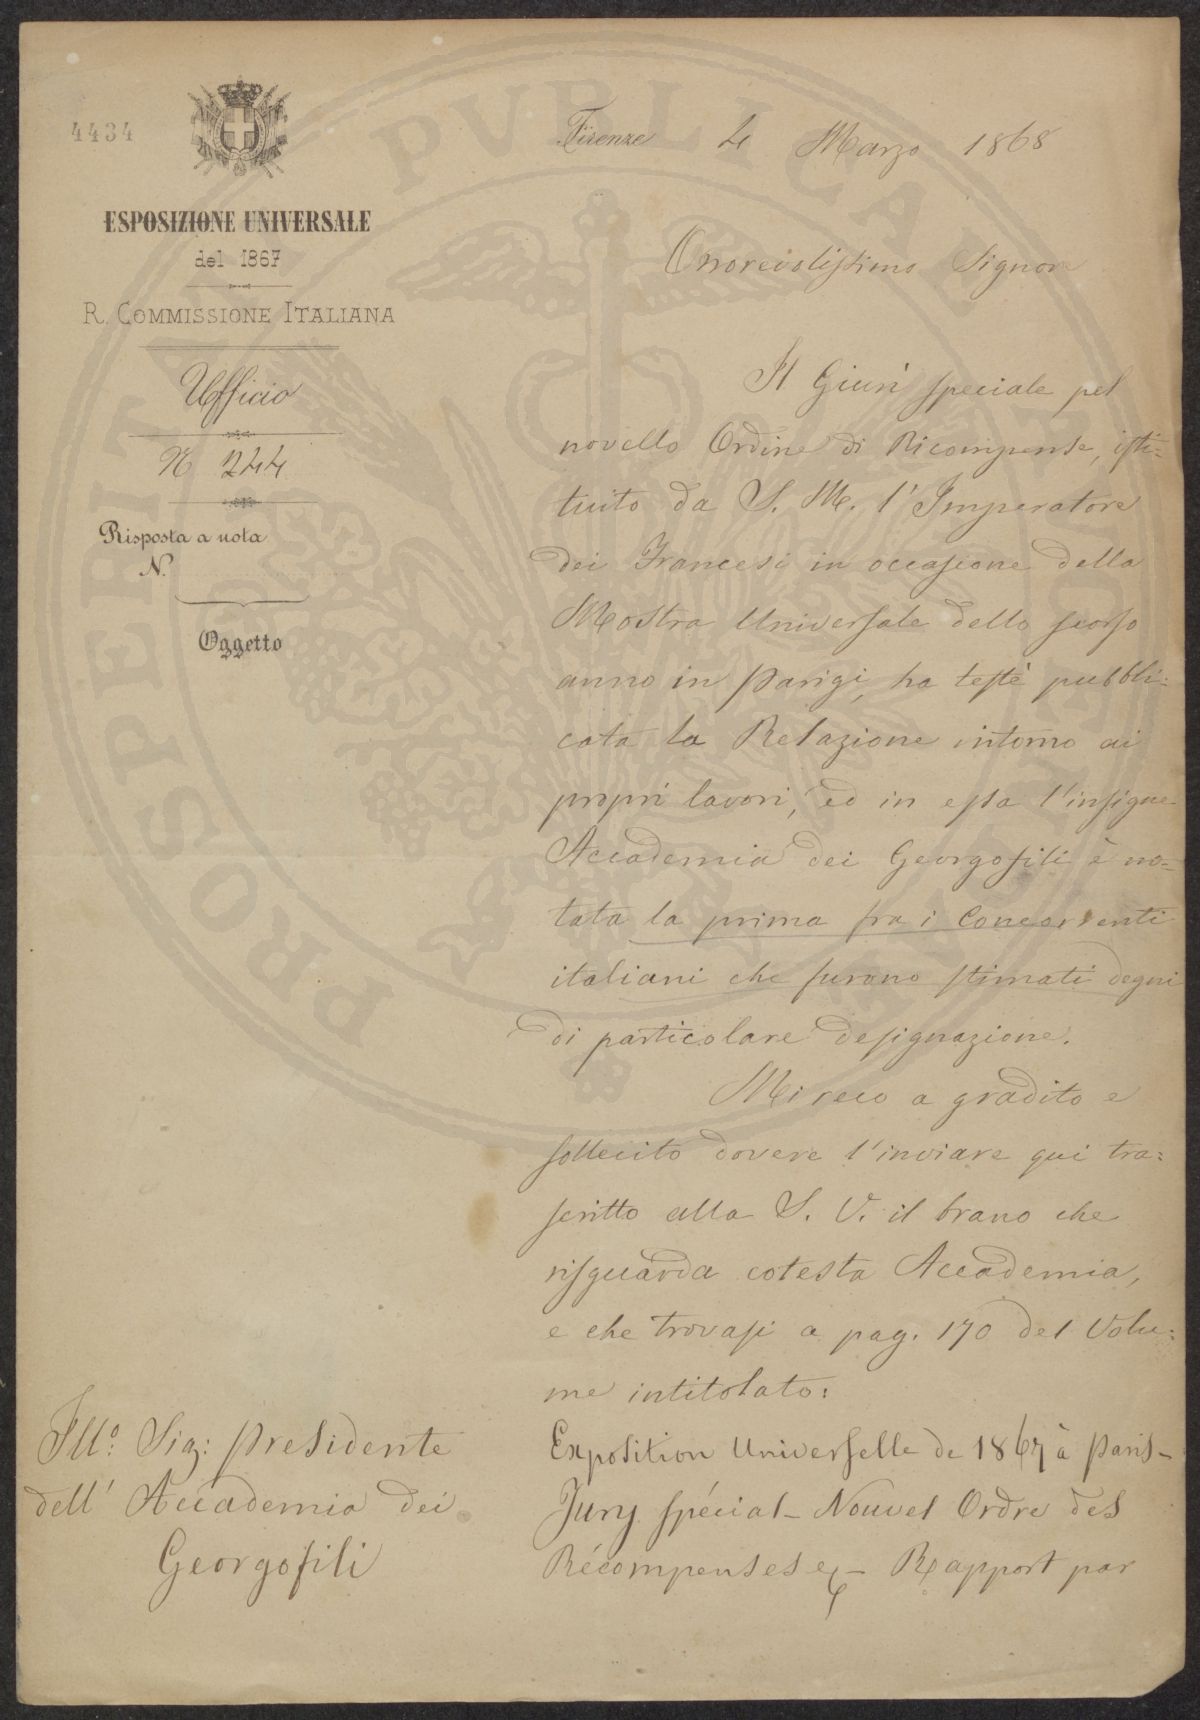 4434
ESPOSIZIONE UNIVERSALE
del 1867
R. COMMISSIONE ITALIANA
Ufficio
N 244
Risposta a nota
N.
Oggetto
Firenze 4 Marzo 1868
Onorevolissimo Signore
Il Giurì speciale pel
novello Ordine di Ricompense, isti=
tuito da S. M. l'Imperatore
dei Francesi in occasione della
Mostra Universale dello scorso
anno in Parigi, ha testè pubbli=
cata la Relazione intorno ai
proprî lavori, ed in essa l'insigne
Accademia dei Georgofili è no=
tata la prima fra i Concorrenti
italiani che furono stimati degni
di particolare designazione.
Mi reco a gradito e
sollecito dovere l'inviare qui tra=
scritto alla S. V. il brano che
risguarda cotesta Accademia,
e che trovasi a pag. 170 del Volu=
me intitolato:
Exposition Universelle de 1867 à Paris_
Jury spécial_ Nouvel Ordre des
Récompenses _ Rapport par
Ill.º Sig: Presidente
dell'Accademia dei
Georgofili
PROSPERITATI PVBLICAE AVGENDAE